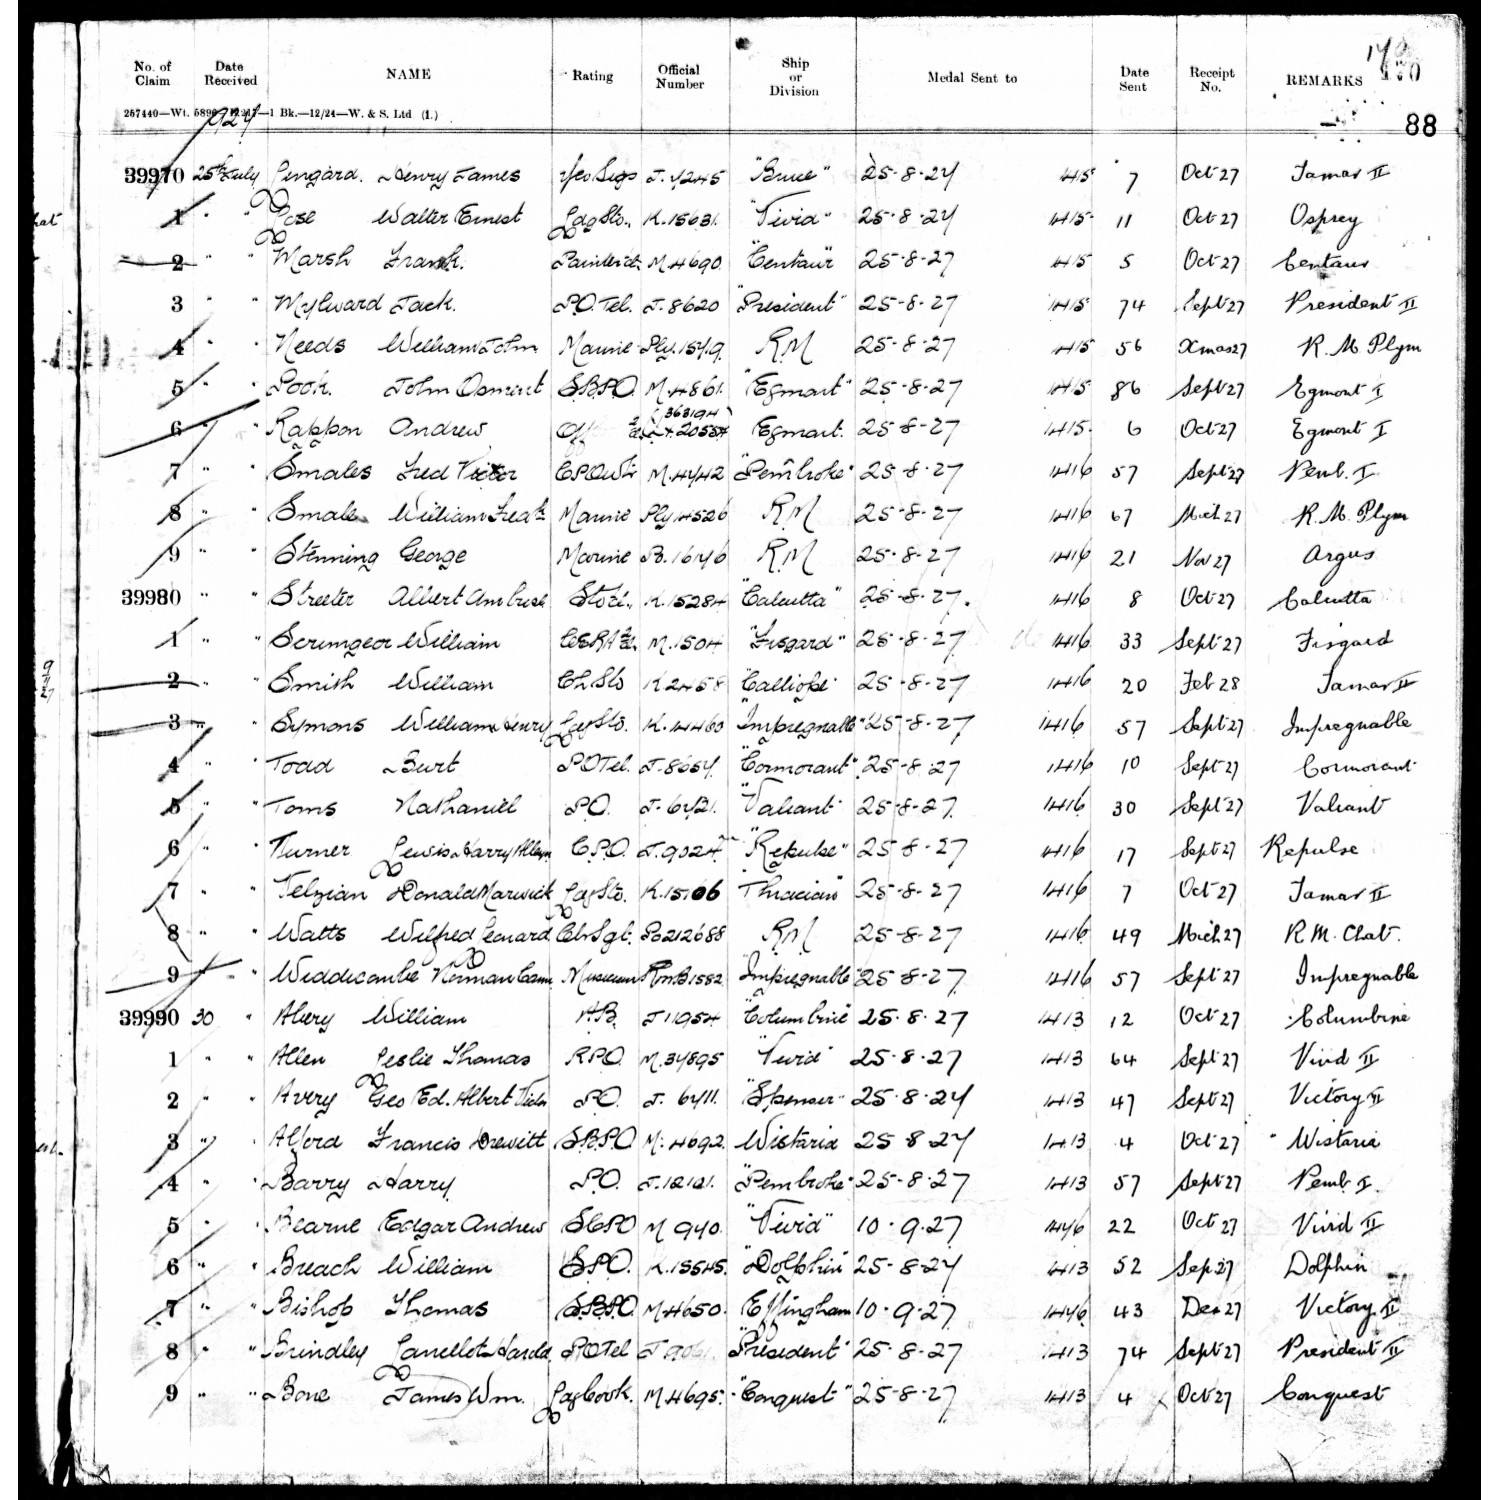 170
No. of Claim Date Received NAME Rating Official Number Ship or Division Medal Sent to Date Sent Receipt No. REMARKS
88
39970 25th July Henry James Yeo Sigs J. 4245 "Bruce" 25-8-27 1415 7 Oct 27 Tamar II
1 " " Pose Walter Ernest Ldg Sto. K. 15631. "Vivid" 25-8-27 1415 11 Oct 27 Osprey
2 " " Marsh Frank. M. 4690. "Centaur" 25-8-27 1415 5 Oct 27 Centaur
3 " " Mylward Jack. P.O. Tel. J. 8620 "President" 25-8-27 1415 74 Sept 27 President II
4 " " Needs William John Marine Ply. R.M 25-8-27 1415 56 Xmas 27 R. M. Plym
5 " " Pook. John Osment S.B.P.O. M. 4861. "Egmont" 25-8-27 1415 86 Sept 27 Egmont I
6 " " Rappon Andrew Off 363194 Egmont. 25-8-27 1415 6 Oct 27 Egmont I
7 " " Smales Fred Victor M. 4442 "Pembroke" 25-8-27 1416 57 Sept 27 Pemb. I
8 " " Smale William Fredk Marine Ply 14526 R.M 25-8-27 1416 67 Mich 27 R. M. Plym
9 " " Stenning George Marine R.M 25-8-27 1416 21 Nov 27 Argus
39980 " " Streeter Albert Ambrose Sto K. 15284 "Calcutta" 25-8-27. 1416 8 Oct 27 Calcutta
1 " " Scrimgeor William M. 1504 "Fisgard" 25-8-27 1416 33 Sept 27 Fisgard
2 " " Smith William Ch Sto K 2458 "Calliope" 25-8-27 1416 20 Feb 28 Tamar II
3 " " Symons William Henry Ldg Sto. K. 14460 "Impregnable" 25-8-27 1416 57 Sept 27 Impregnable
4 " " Todd Burt P.O Tel. J. 8654. "Cormorant" 25-8-27 1416 10 Sept 27 Cormorant
5 " " Toms Nathaniel P.O. "Valiant" 25-8-27. 1416 30 Sept 27 Valiant
6 " " Turner Lewis Harry C.P.O. J. 9024 "Repulse" 25-8-27 1416 17 Sept 27 Repulse
7 " " Velzian Donald Marwick Ldg Sto. K. 15106 "Thracian" 25-8-27 1416 7 Oct 27 Tamar II
8 " " Watts Wilfred Leonard Clr Sgt. R.M 25-8-27 1416 49 Mich 27 R.M. Chat.
9 " " Widdecombe Norman Musician RMB 1582 "Impregnable" 25-8-27 1416 57 Sept 27 Impregnable
39990 30 " Abery William A.B. J 11954 "Columbine" 25-8-27 1413 12 Oct 27 Columbine
1 " " Allen Leslie Thomas R.P.O. M. 37895 "Vivid" 25-8-27 1413 64 Sept 27 Vivid II
2 " " Avery Geo Ed. Albert P.O. J. 6411. "Spenser" 25-8-27 1413 47 Sept 27 Victory II
3 " " Alford Francis Drewitt S.B.P.O M. 4692. Wistaria 25-8-27 1413 4 Oct 27 " Wistaria
4 " " Barry Harry P.O. J. 12121. "Pembroke" 25-8-27 1413 57 Sept 27 Pemb I.
5 " " Bearne Edgar Andrew S.C.P.O M 940. "Vivid" 10-9-27 1446 22 Oct 27 Vivid II
6 " " Breach William S.P.O. K. 15545. "Dolphin" 25-8-27 1413 52 Sep 27 Dolphin
7 " " Bishop Thomas S.B.P.O. M. 4650. Effingham 10-9-27 1446 43 Dec 27 Victory II
8 " " Brindley Lancelot Harold P.O Tel "President" 25-8-27 1413 74 Sept 27 President II
9 " " Bone James Wm. Ldg Cook. M. 4695. "Conquest" 25-8-27 1413 4 Oct 27 Conquest